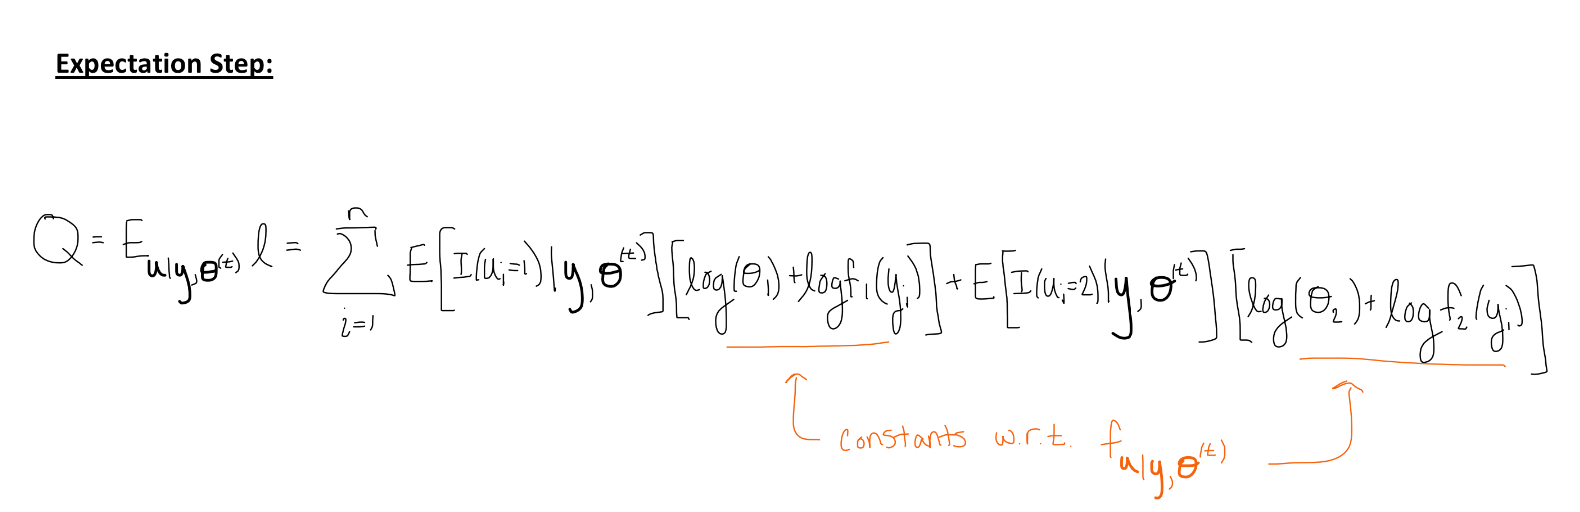 Expectation Step:
Q = E_{u|y,θ^{(t)}} l = \sum_{i=1}^{n} E[I(u_i=1)|y,θ^{(t)}][log(θ_1)+logf_1(y_i)] + E[I(u_i=2)|y,θ^{(t)}][log(θ_2)+logf_2(y_i)]
constants w.r.t. f_{u|y,θ^{(t)}}